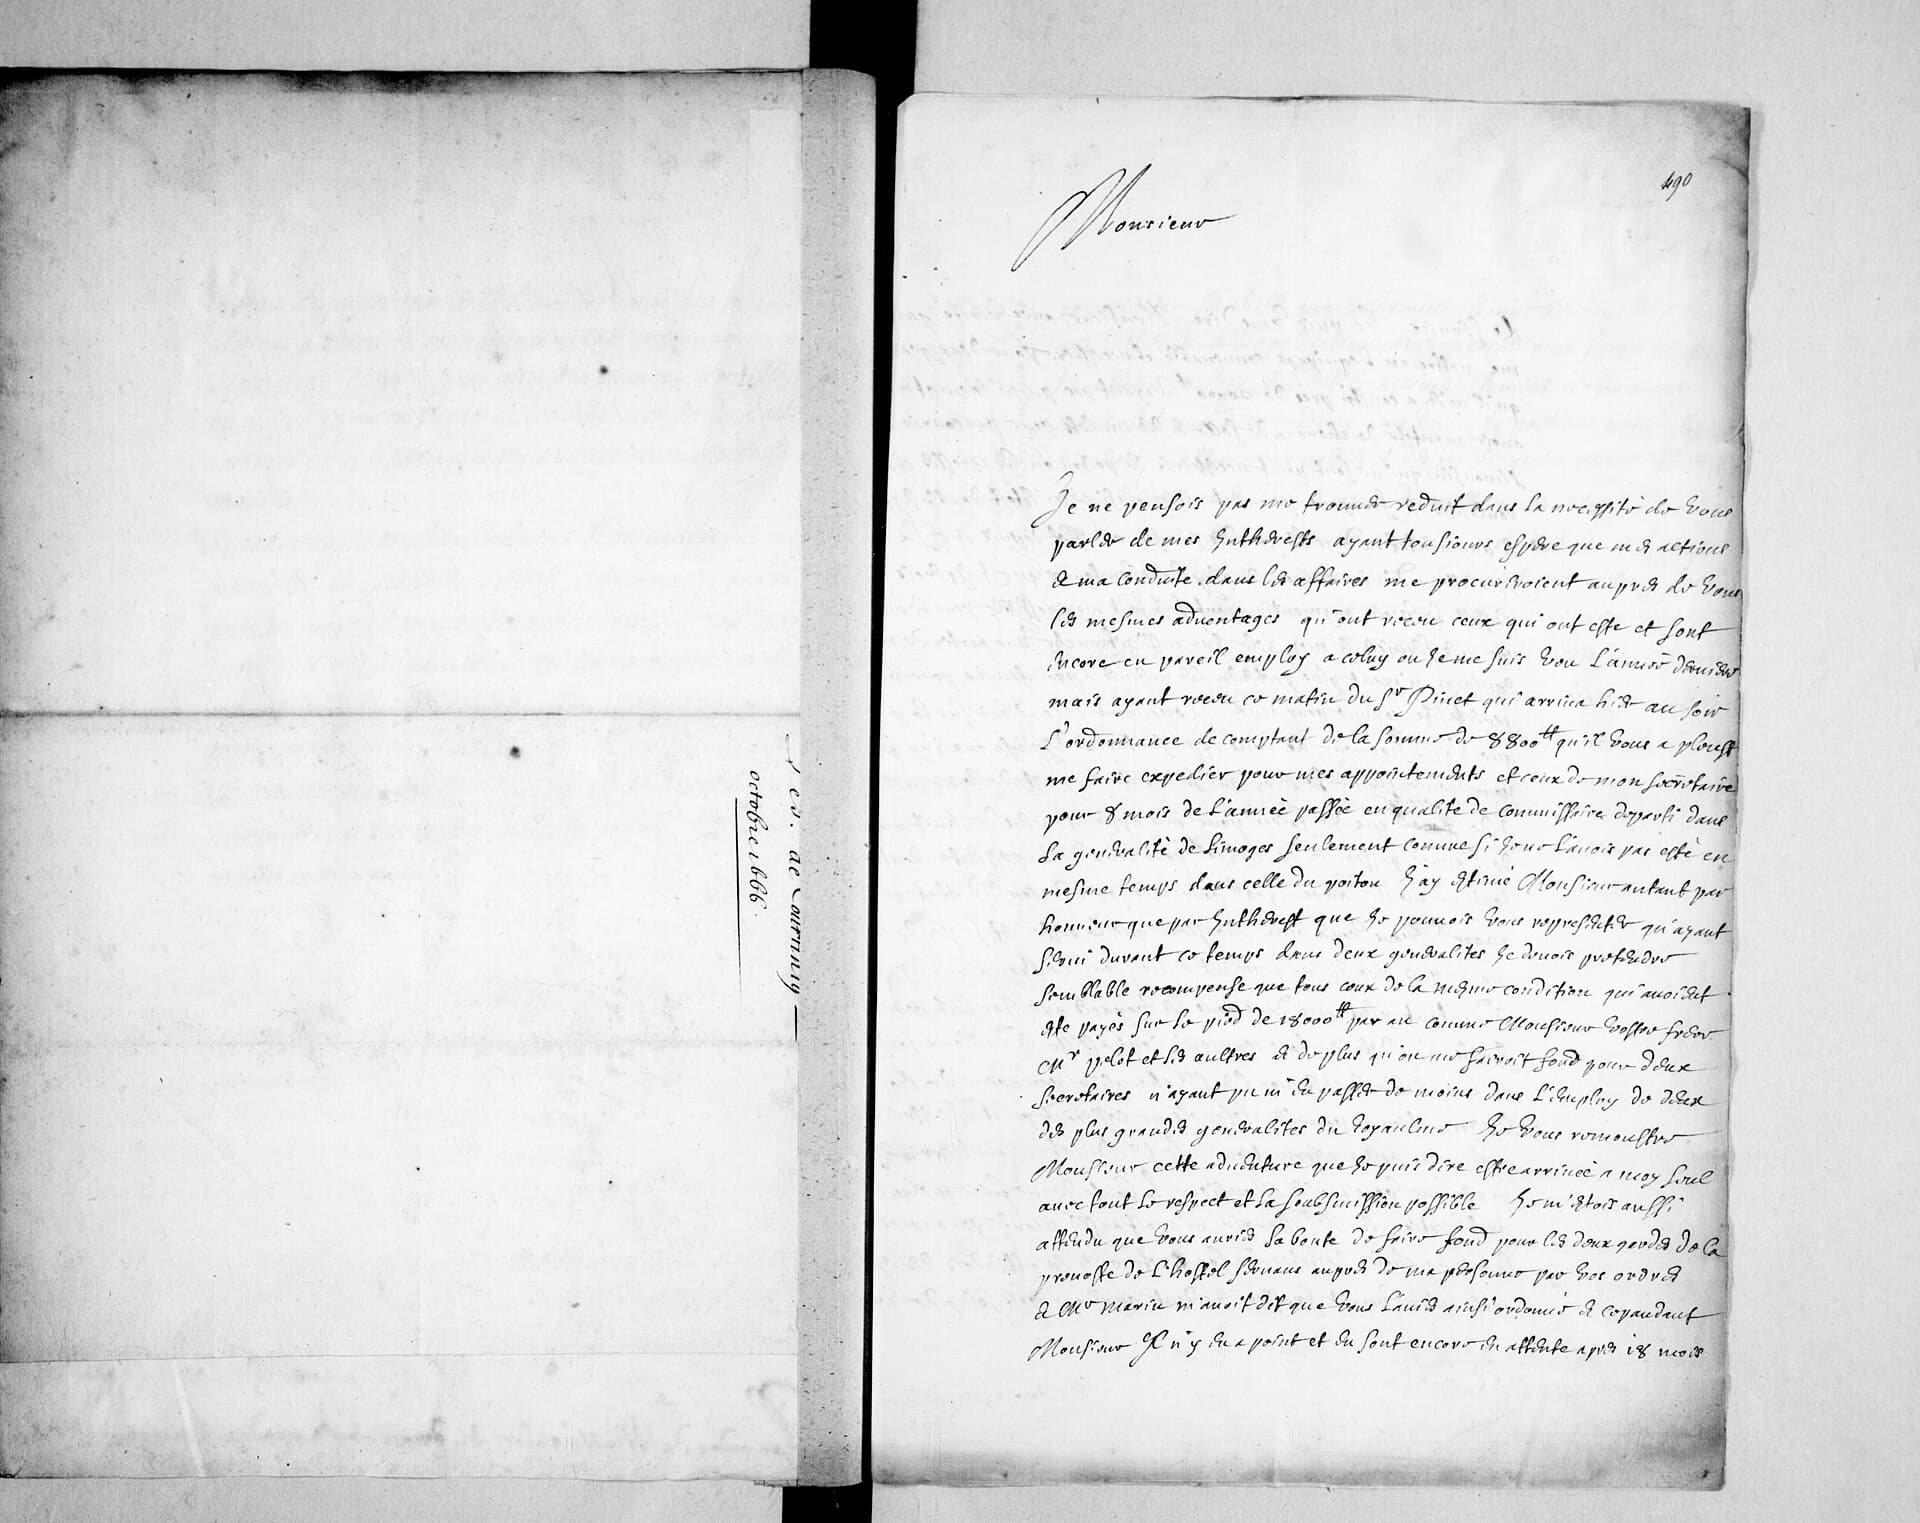 de Courtinly
octobre 1666.
490
Monsieur
Je ne pensois pas me trouuer reduit dans la necessité de vous
parler de mes Intherests ayant tousiours espere que mes actions
& ma conduite dans les affaires me procureroient aupres de vous
les mesmes aduentages qu'ont receu ceux qui ont esté et sont
encore en pareil employ a celuy ou Je me suis veu L'année derniere
mais ayant receu ce matin du Sr Pinet qui arriua hier au soir
L'ordonnance de comptant de la somme de 8800tt qu'il vous a pleust
me faire expedier pour mes appointements et ceux de mon secretaire
pour 8 mois de L'année passée en qualité de commissaire departi dans
La generalité de Limoges seulement comme si Je ne L'auois pas esté en
mesme temps dans celle du poitou J'ay estimé Monsieur autant par
honneur que par Intherest que Je pouuois vous representer qu'ayant
serui durant ce temps dans deux generalites Je deuois pretendre
semblable recompense que tous ceux de la mesme condition qui auoient
esté payés sur le pied de 18000tt par an comme Monsieur vostre frere
Mr pelot et les aultres & de plus qu'on me fairoit fond pour deux
secretaires n'ayant pu m'en passer de moins dans L'employ de deux
des plus grandes generalites du Royaulme Je vous remonstre
Monsieur cette aduenture que Je puis dire estre arriuée a moy seul
auec tout le respect et la soubsmission possible Je m'estois aussi
attendu que vous auries la bonte de faire fond pour les deux gardes de la
preuoste de L'hostel seruans aupres de ma personne par vos ordres
& Mr Marin m'auoit dit que vous L'auies ainsi ordonné & cependant
Monsieur Il n'y en a point et en sont encore en attente apres 18 mois